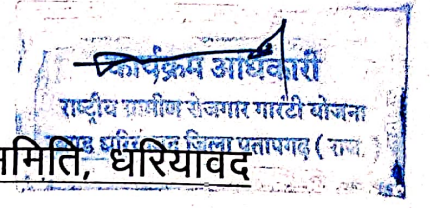 कार्यक्रम अधिकारी
राष्ट्रीय ग्रामीण रोजगार गारंटी योजना
जिला प्रतापगढ़ ( राज. )
मिति, धरियावद